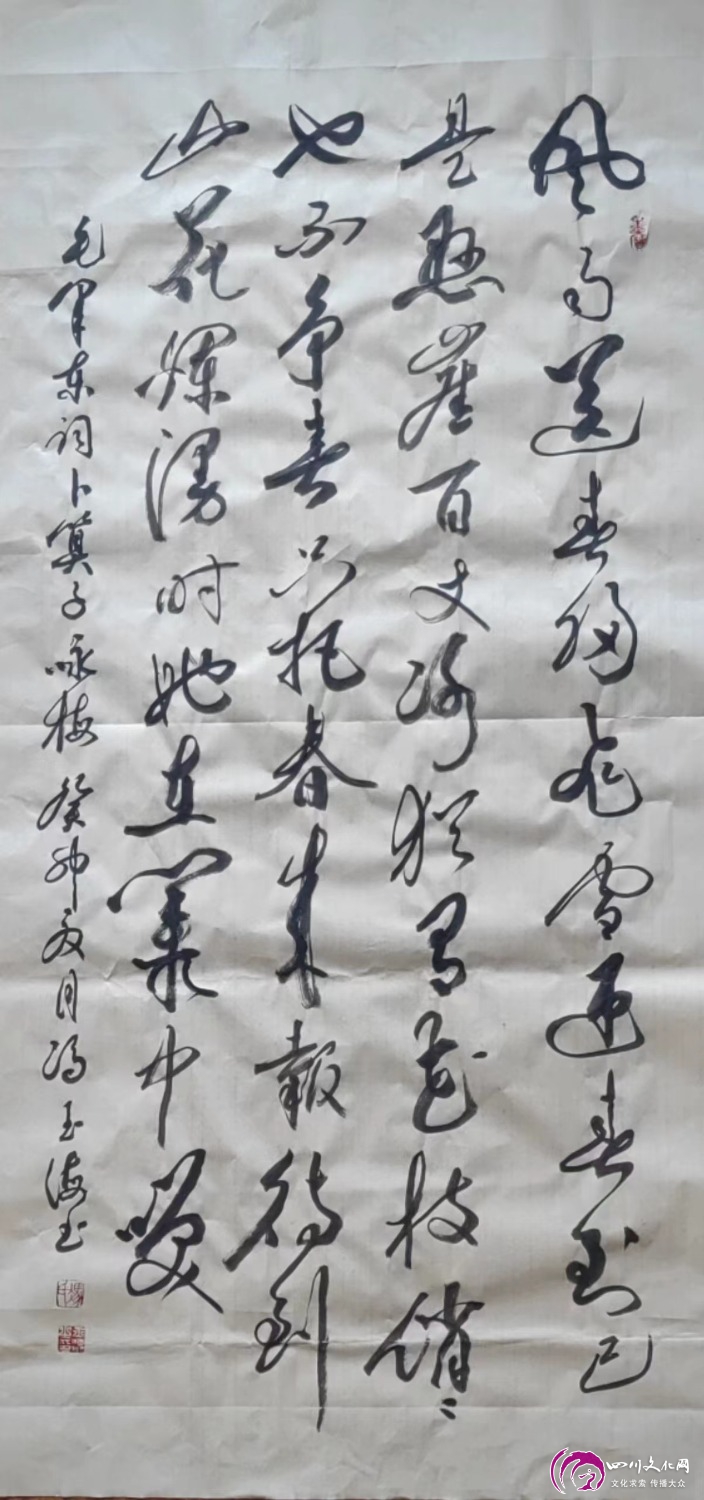 风雨送春归飞雪迎春到已
是悬崖百丈冰犹有花枝俏〻
也不争春只把春来報待到
山花烂漫时她在丛中咲
毛泽东词卜算子咏梅 癸卯夏月冯玉海书
四川文化网
文化求索 传播大众